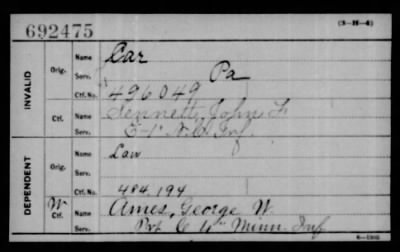 692475
(3-H-4)
INVALID
Orig.
Name Car
Serv. Pa
Ctf. No. 496049
Ctf. Sennett, John F
Inf.
DEPENDENT
Orig.
Name Law
Serv.
Ctf. No. 484,194
W Ctf. Ames, George W.
Pvt C 4" Minn Inf